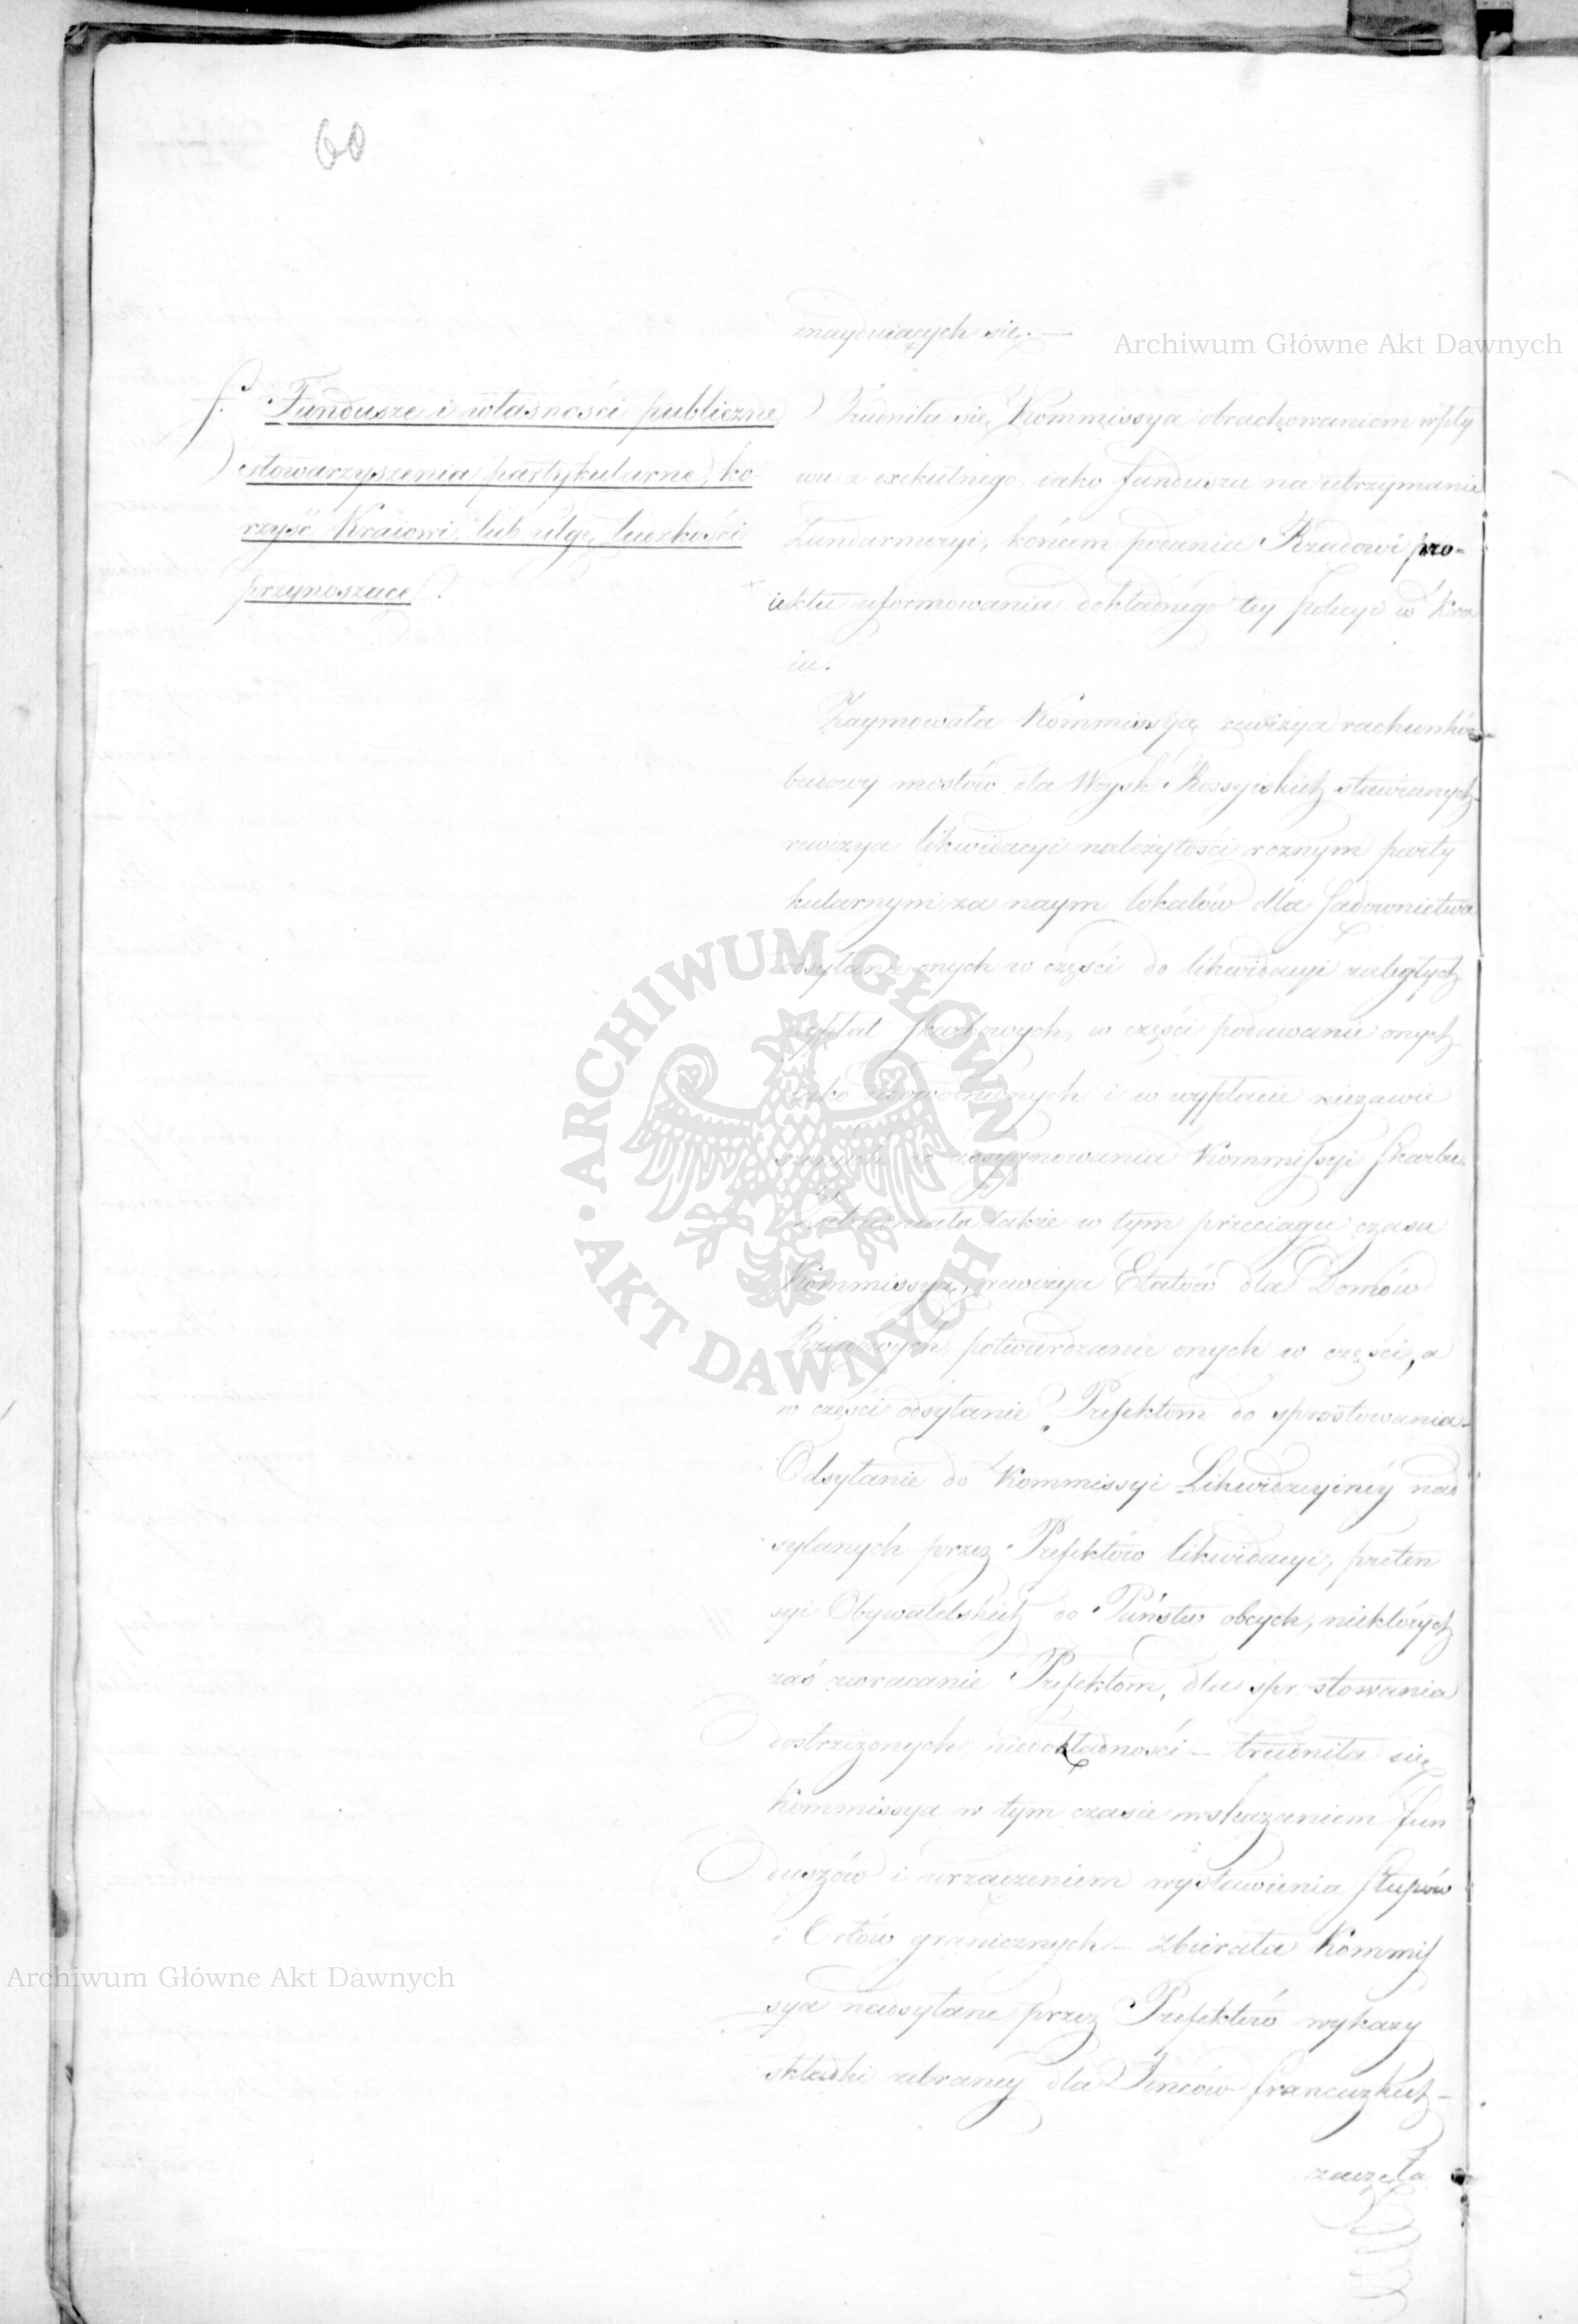 60
znayduiących się. —
f. Fundusze i własności publiczne
stowarzyszenia partykularne, ko-
rzyść Kraiowi, lub ulgę ludzkości
przynoszące?
Trudniła się Kommissya obrachowaniem wpły
wu z exekutnego, iako funduszu na utrzymanie
Żandarmeryi, końcem podania Rządowi pro-
iektu uformowania dokładnego tey policyi w Kra
iu.
Zaymowała Kommissyą rewizya rachunków
budowy mostów dla Woysk Rossyiskich stawianych
rewizya likwidacyi należytości roznym party
kularnym za naym lokalów dla Sądownictwa
odsyłanie onych w części do likwidacyi zaległych
wypłat skarbowych, w części podawanie onych
iako udowodnionych i w wypłacie niezawie
szonych do assygnowania Kommissyi Skarbu.
także w tym przeciągu czasu
Kommissyą, rewizya Etatów dla Domów
Rządowych, potwierdzanie onych w części, a
w części odsyłanie Prefektom do sprostowania.
Odsyłanie do Kommissyi Likwidacyiney nad
syłanych przez Prefektów likwidacyi, preten
syi Obywatelskich do Państw obcych, niektórych
zaś zwracanie Prefektom, dla sprostowania
dostrzeżonych niedokładności – trudniła się
Kommissya w tym czasie wskazaniem fun
duszów i urządzeniem wystawienia słupów
i Orłów granicznych – zbierała Kommis
sya nadsyłane przez Prefektów wykazy
składki zebraney dla Jeńców francuzkich –
zaczęła
Archiwum Główne Akt Dawnych
Archiwum Główne Akt Dawnych
ARCHIWUM GŁÓWNE · AKT DAWNYCH ·